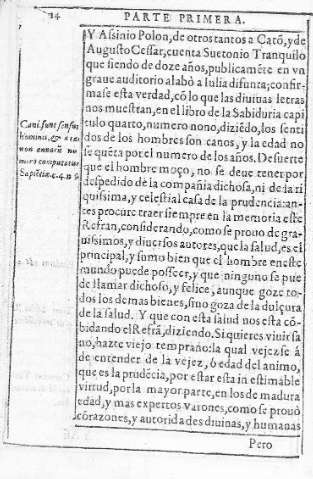 14
PARTE PRIMERA.
Y Assinio Polon, de otros tantos a Catõ, y de
Augusto Cessar, cuenta Suetonio Tranquilo
que siendo de doze años, publicamẽte en vn
graue auditorio alabò a Iulia difunta; confir-
mase esta verdad, cõ lo que las diuinas letras
nos muestran, en el libro de la Sabiduria capi
tulo quarto, numero nono, diziẽdo, los senti
dos de los hombres son canos, y la edad no
se quẽta por el numero de los años. De suerte
que el hombre moço, no se deue tener por
despedido de la compañia dichosa, ni de la ri
quissima, y celestial casa de la prudencia: an-
tes procure traer siempre en la memoria este
Refran, considerando, como se prouo de gra-
uissimos, y diuersos autores, que la salud, es el
principal, y sumo bien que el hombre en este
mundo puede posseer, y que ninguno se pue
de llamar dichoso, y felice, aunque goze to-
dos los demas bienes, sino goza de la dulçura
de la salud. Y que con esta salud nos esta cõ-
bidando el Refrã, diziendo. Si quieres viuir sa
no, hazte viejo temprano: la qual vejez se à
de entender de la vejez, ò edad del animo,
que es la prudẽcia, por estar esta inestimable
virtud, por la mayor parte, en los de madura
edad, y mas expertos varones, como se prouò
corazones, y autoridades diuinas, y humanas
Pero
Cani. sunt sensus
hominis, &
non annorũ nu
mero computatur
Sapiẽtiæ. 4. n. 9